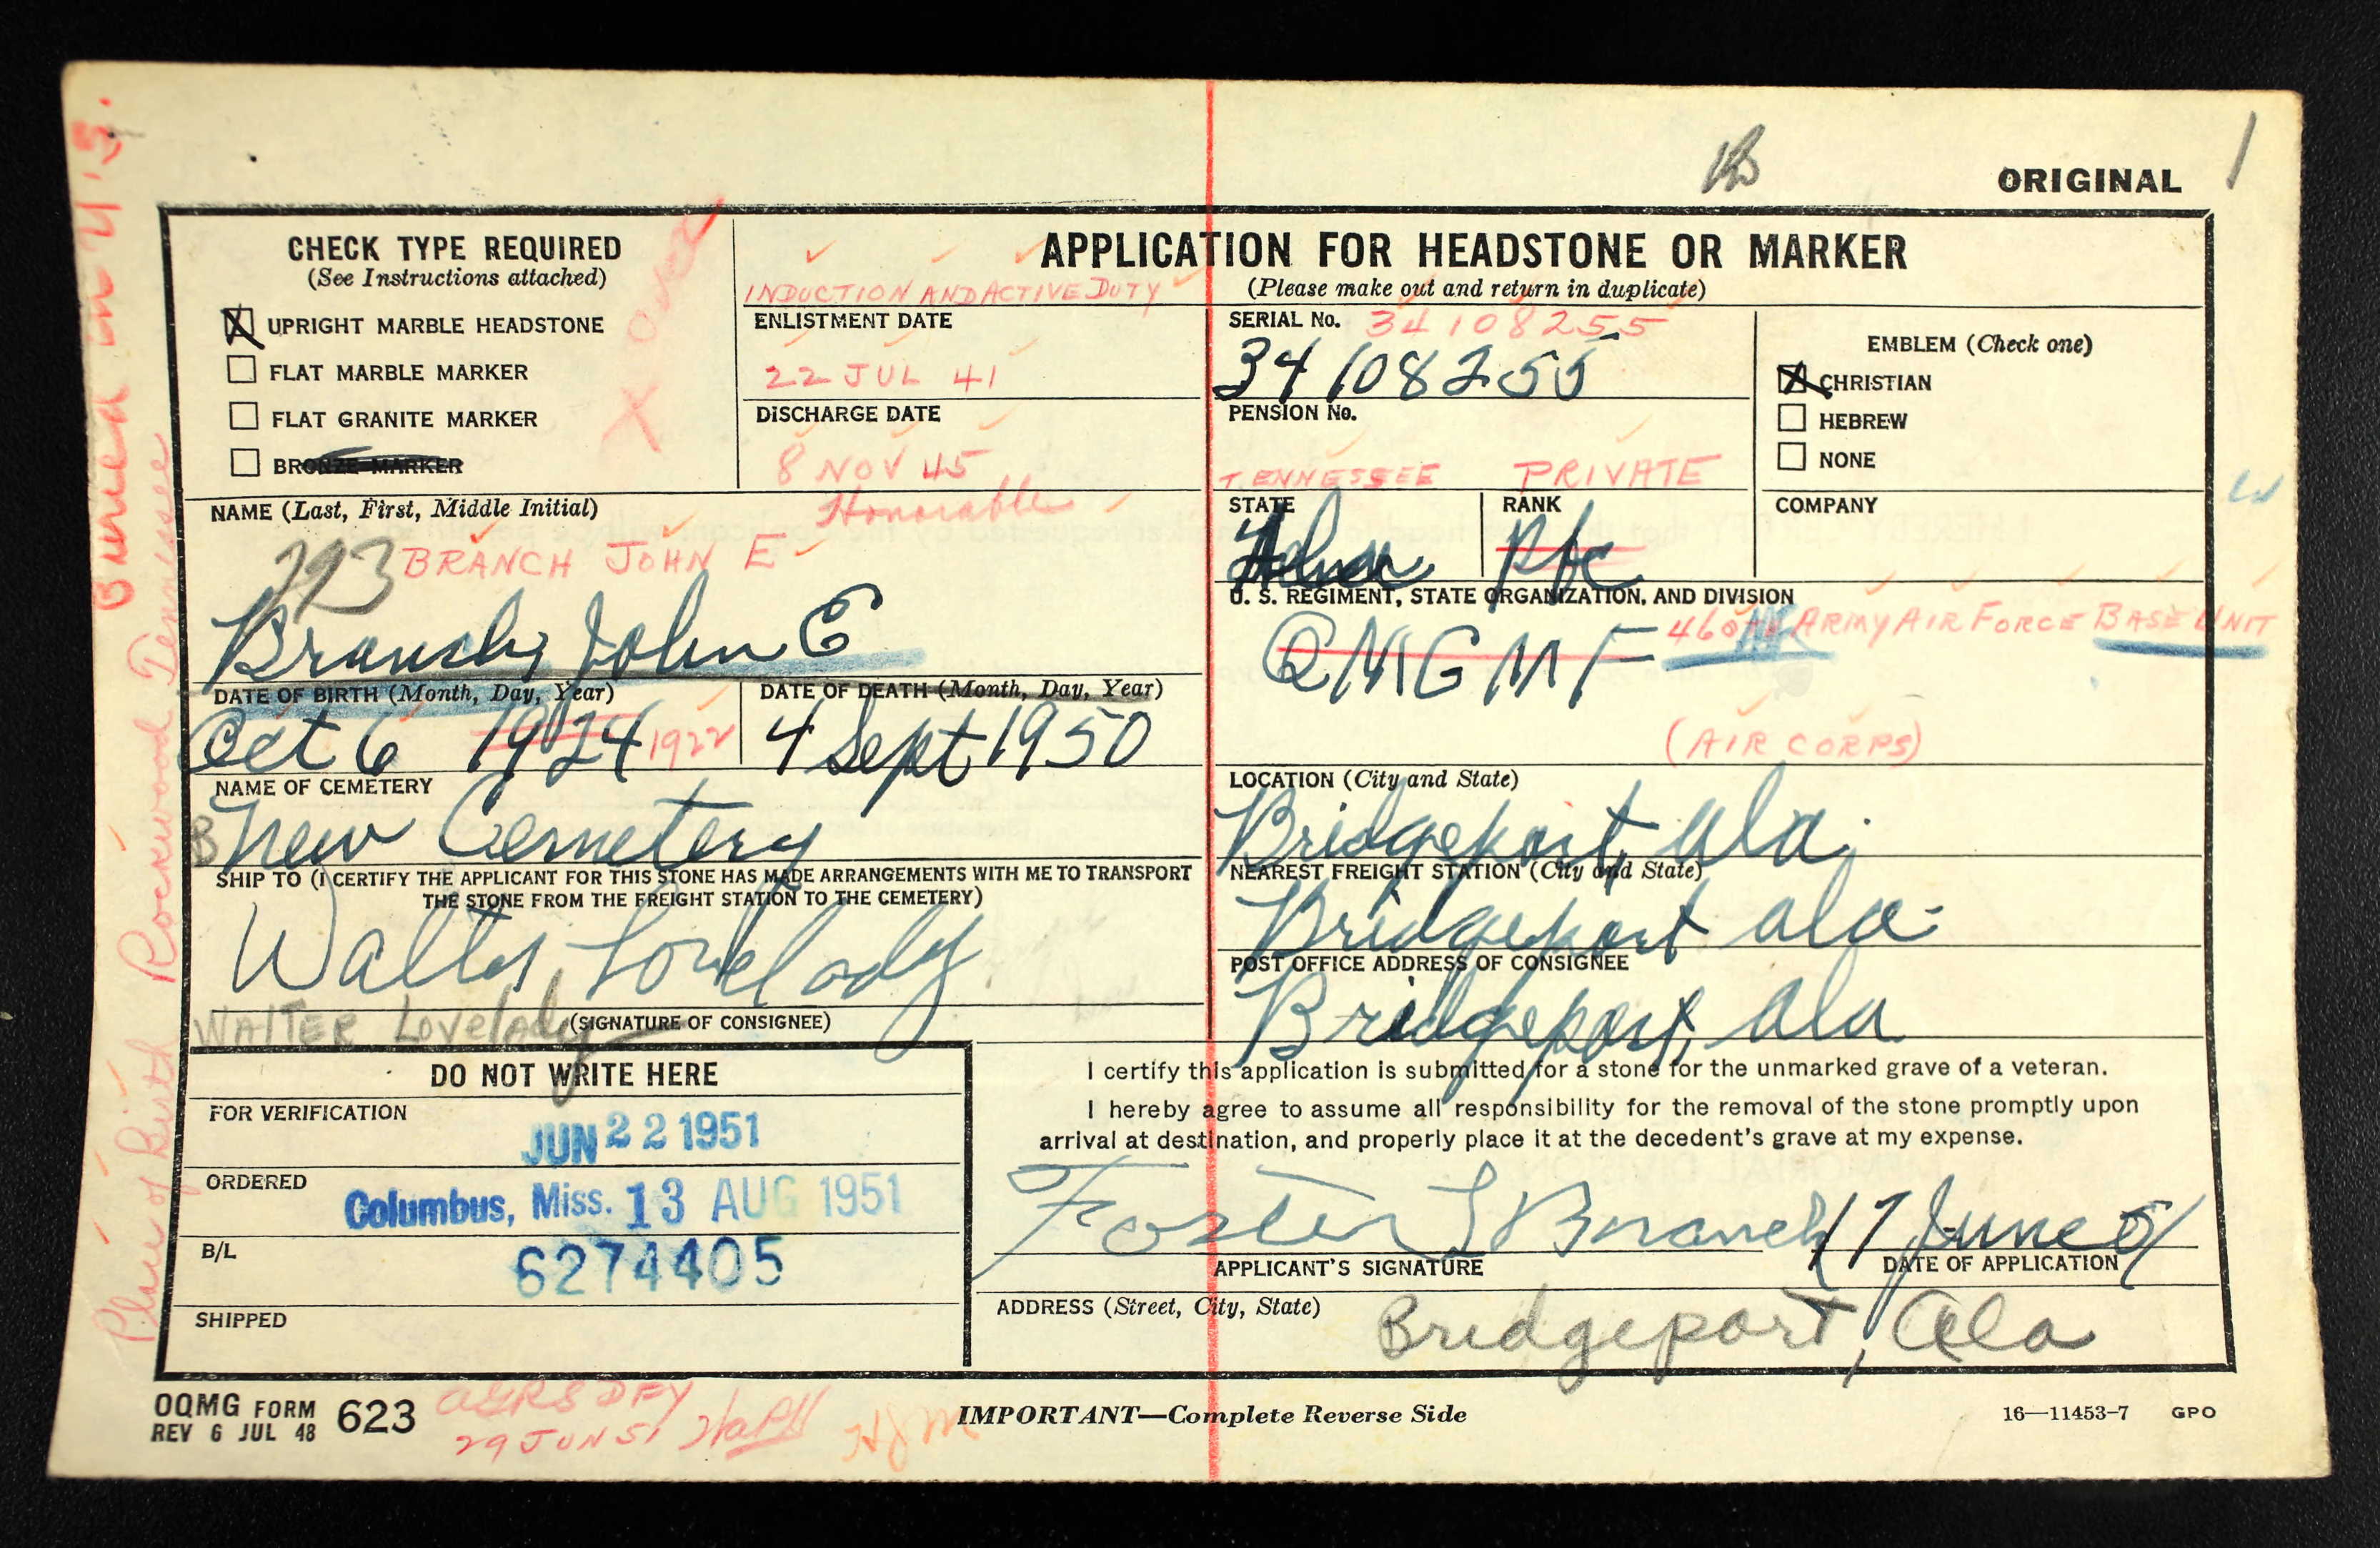 ORIGINAL 1
CHECK TYPE REQUIRED
(See Instructions attached)
X UPRIGHT MARBLE HEADSTONE
FLAT MARBLE MARKER
FLAT GRANITE MARKER
BRONZE MARKER
X Over
INDUCTION AND ACTIVE DUTY
ENLISTMENT DATE
22 JUL 41
DISCHARGE DATE
8 NOV 45
Honorable
APPLICATION FOR HEADSTONE OR MARKER
(Please make out and return in duplicate)
SERIAL No. 34108255
34108255
PENSION No.
EMBLEM (Check one)
X CHRISTIAN
HEBREW
NONE
TENNESSEE PRIVATE
STATE RANK COMPANY
Pfc
NAME (Last, First, Middle Initial)
BRANCH JOHN E
Branch, John E
U. S. REGIMENT, STATE ORGANIZATION, AND DIVISION
QMGMF 460 ARMY AIR FORCE BASE UNIT
(AIR CORPS)
DATE OF BIRTH (Month, Day, Year) DATE OF DEATH (Month, Day, Year)
Oct 6 1924 1922 4 Sept 1950
NAME OF CEMETERY LOCATION (City and State)
B New Cemetery Bridgeport, Ala.
SHIP TO (I CERTIFY THE APPLICANT FOR THIS STONE HAS MADE ARRANGEMENTS WITH ME TO TRANSPORT
THE STONE FROM THE FREIGHT STATION TO THE CEMETERY)
NEAREST FREIGHT STATION (City and State)
Bridgeport Ala.
Walter Lovelady
POST OFFICE ADDRESS OF CONSIGNEE
Bridgeport, Ala
WALTER Lovelady (SIGNATURE OF CONSIGNEE)
DO NOT WRITE HERE
FOR VERIFICATION
JUN 22 1951
ORDERED
Columbus, Miss. 13 AUG 1951
B/L
6274405
SHIPPED
I certify this application is submitted for a stone for the unmarked grave of a veteran.
I hereby agree to assume all responsibility for the removal of the stone promptly upon
arrival at destination, and properly place it at the decedent's grave at my expense.
Foster L Branch 17 June 51
APPLICANT'S SIGNATURE DATE OF APPLICATION
ADDRESS (Street, City, State) Bridgeport, Ala
OQMG FORM 623
REV 6 JUL 48
29 JUN 51
IMPORTANT—Complete Reverse Side
16—11453-7 GPO
Place of Birth Rockwood Tennessee
Buried in